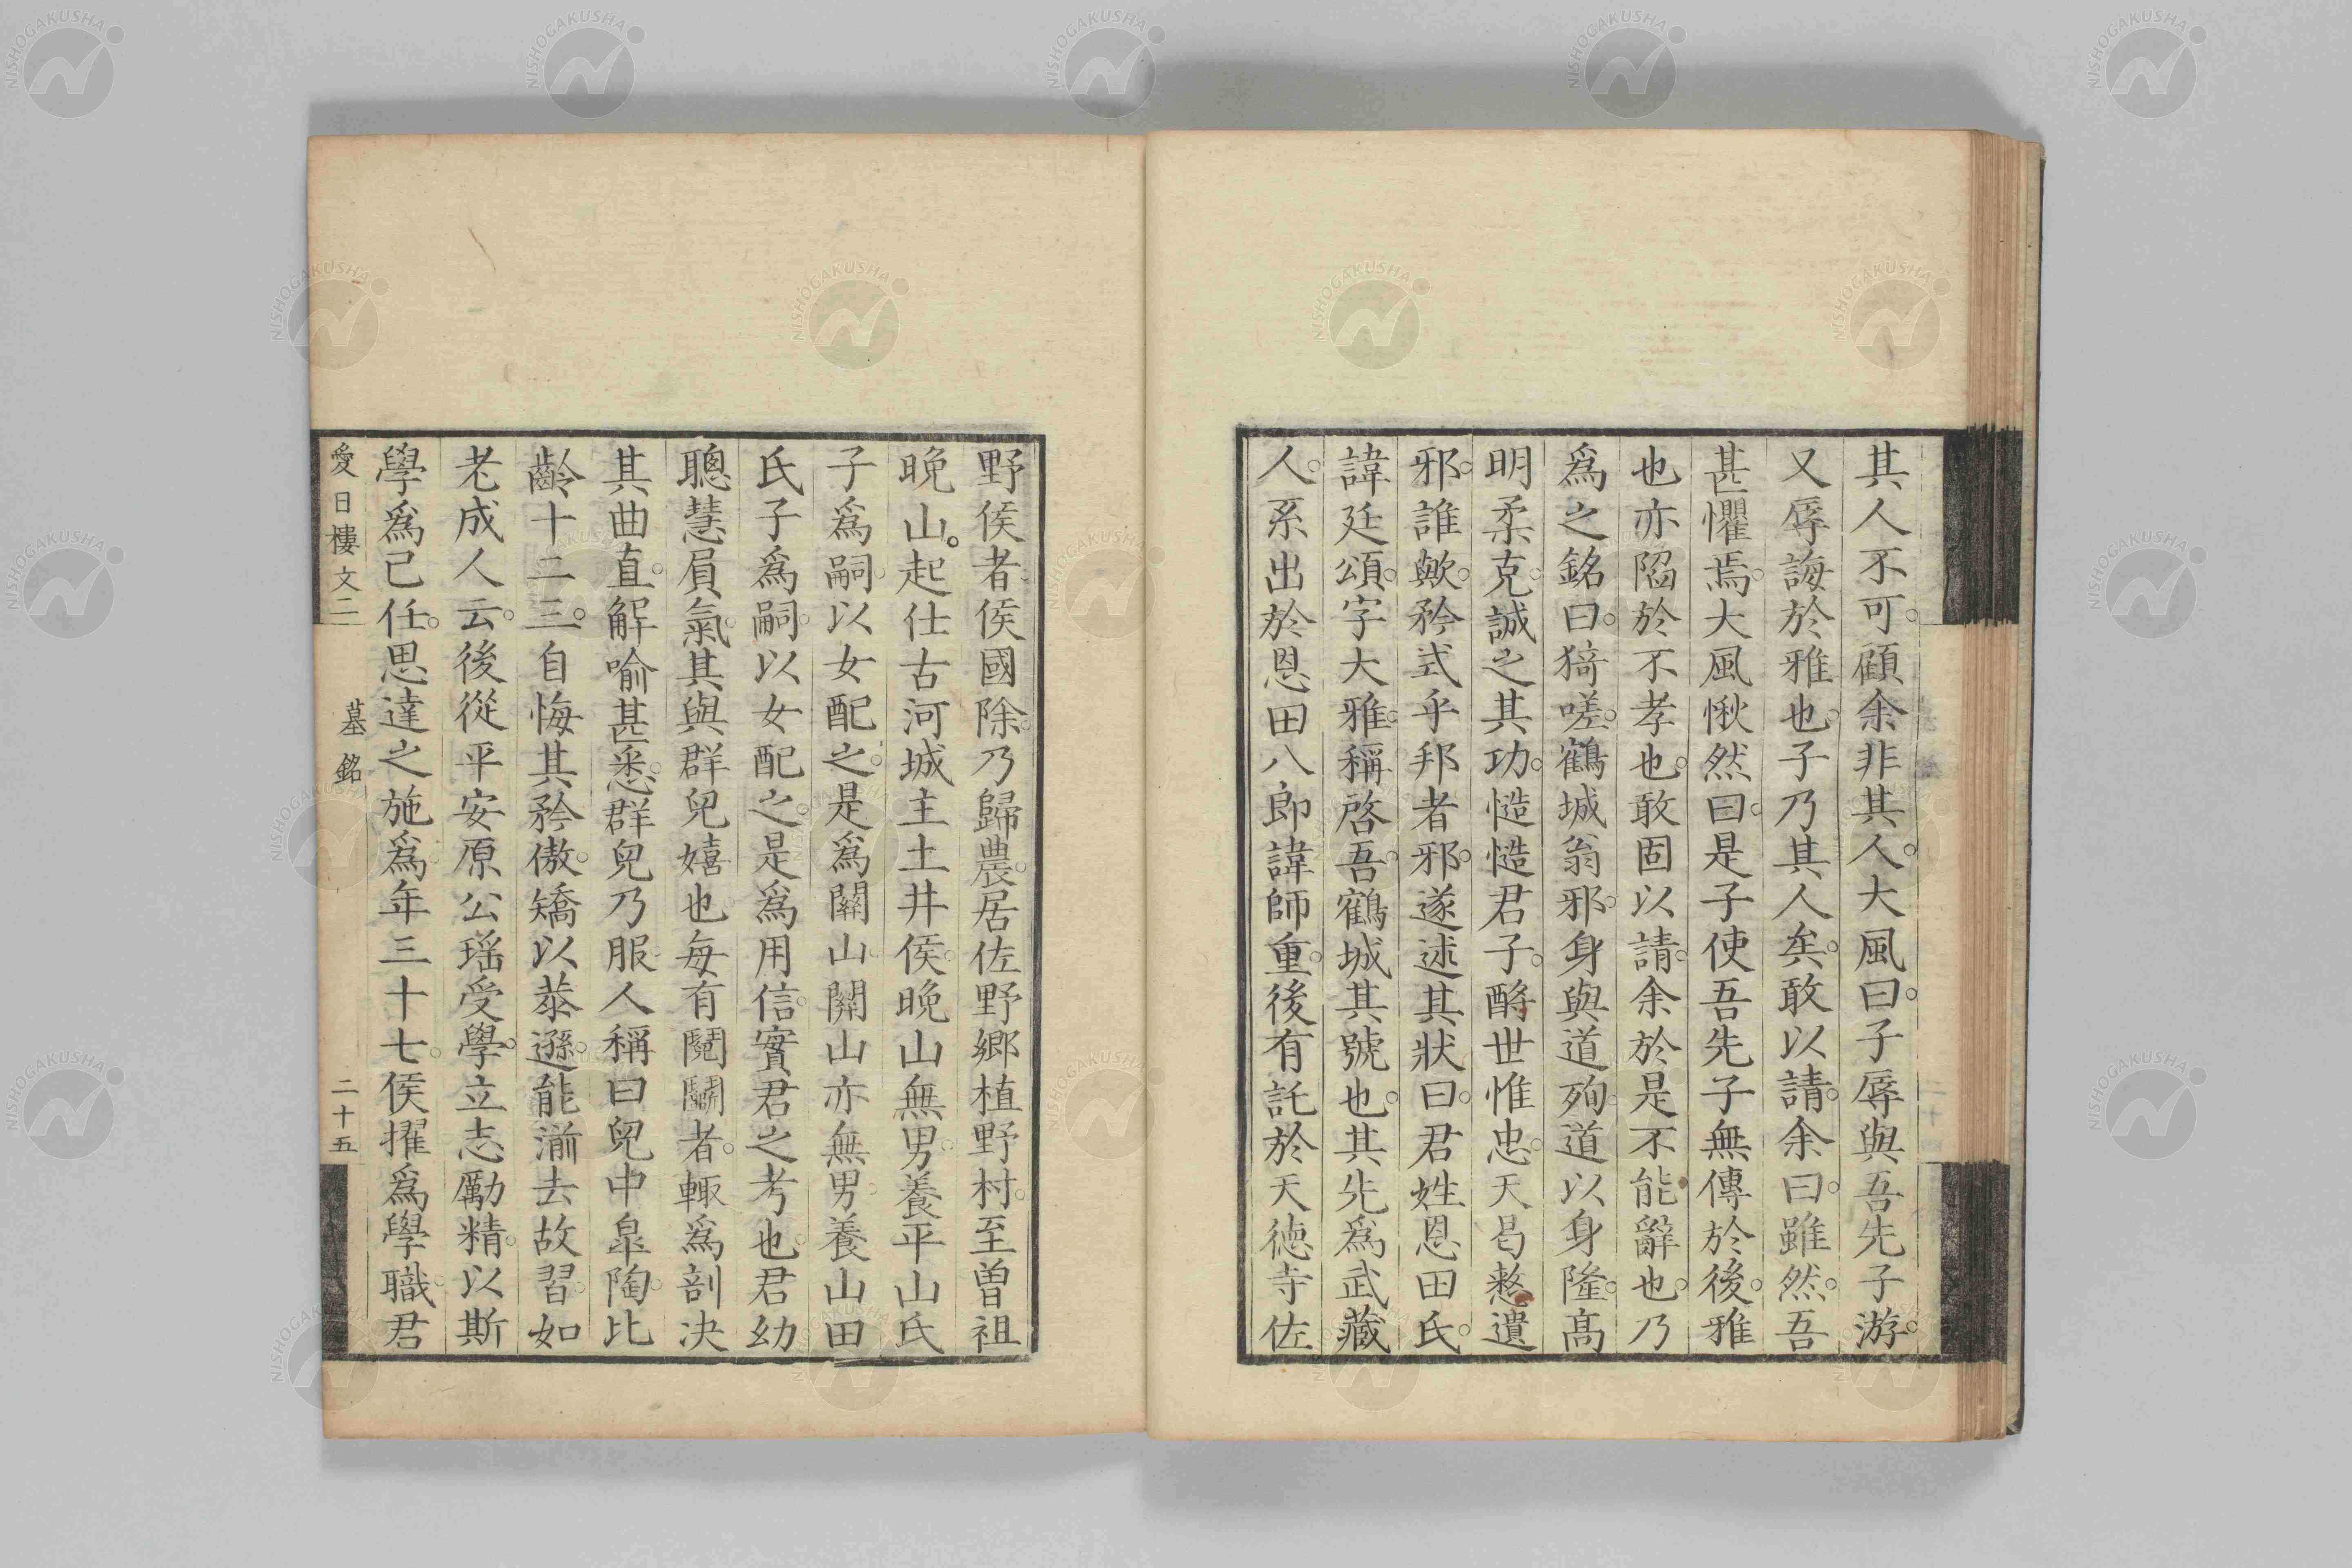 其人不可。顧余非其人。大風曰。子辱與吾先子游。
又辱誨於雅也。子乃其人矣。敢以請。余曰。雖然。吾
甚懼焉。大風愀然曰。是子使吾先子無傳於後。雅
也亦陷於不孝也。敢固以請。余於是不能辭也。乃
爲之銘曰。猗嗟。鶴城翁邪。身與道殉。道以身隆。高
明柔克。誠之其功。慥慥君子。酹世惟忠。天曷憖遺
邪。誰歟。矜式乎邦者邪。遂述其狀曰。君姓恩田氏。
諱廷頌。字大雅。稱啓吾。鶴城其號也。其先爲武藏
人。系出於恩田八郎諱師重。後有託於天徳寺佐
野侯者。侯國除。乃歸農。居佐野郷植野村。至曽祖
晩山。起仕古河城主土井侯。晩山無男。養平山氏
子爲嗣。以女配之。是爲關山。關山亦無男。養山田
氏子爲嗣。以女配之。是爲用信。實君之考也。君幼
聰慧負氣。其與群兒嬉也。毎有鬩鬭者。輙爲剖决
其曲直。解喩甚悉。群兒乃服。人稱曰兒中皐陶。比
齡十二三。自悔其矜傲。矯以恭遜。能湔去故習。如
老成人云。後從平安原公瑶受學。立志勵精。以斯
學爲己任。思達之施爲。年三十七。侯擢爲學職。君
愛日樓文二 墓銘 二十五
NISHOGAKUSHA